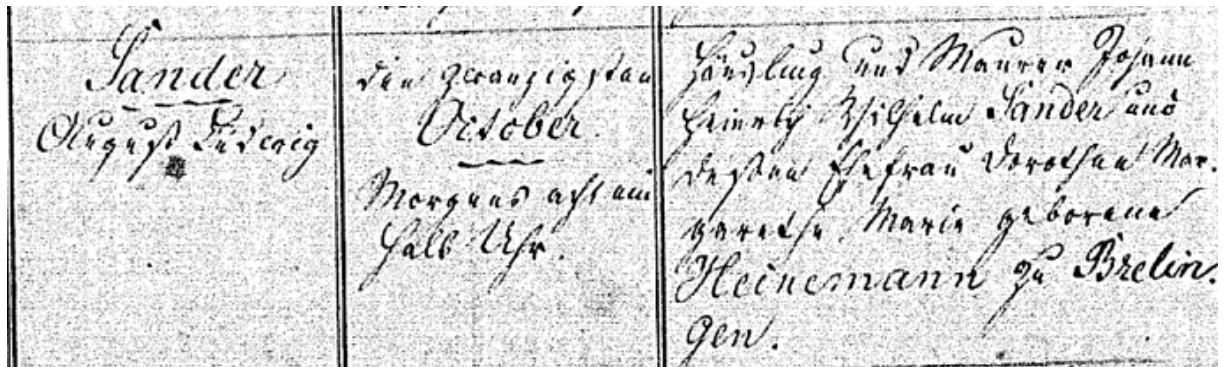 Sander
August Ludewig
den zwanzigsten
October.
Morgens acht ein
halb Uhr.
Häusling und Maurer Johann
Heinrich Wilhelm Sander und
deßen Ehefrau Dorothee Mar-
garethe Marie geborene
Heinemann zu Brelin-
gen.